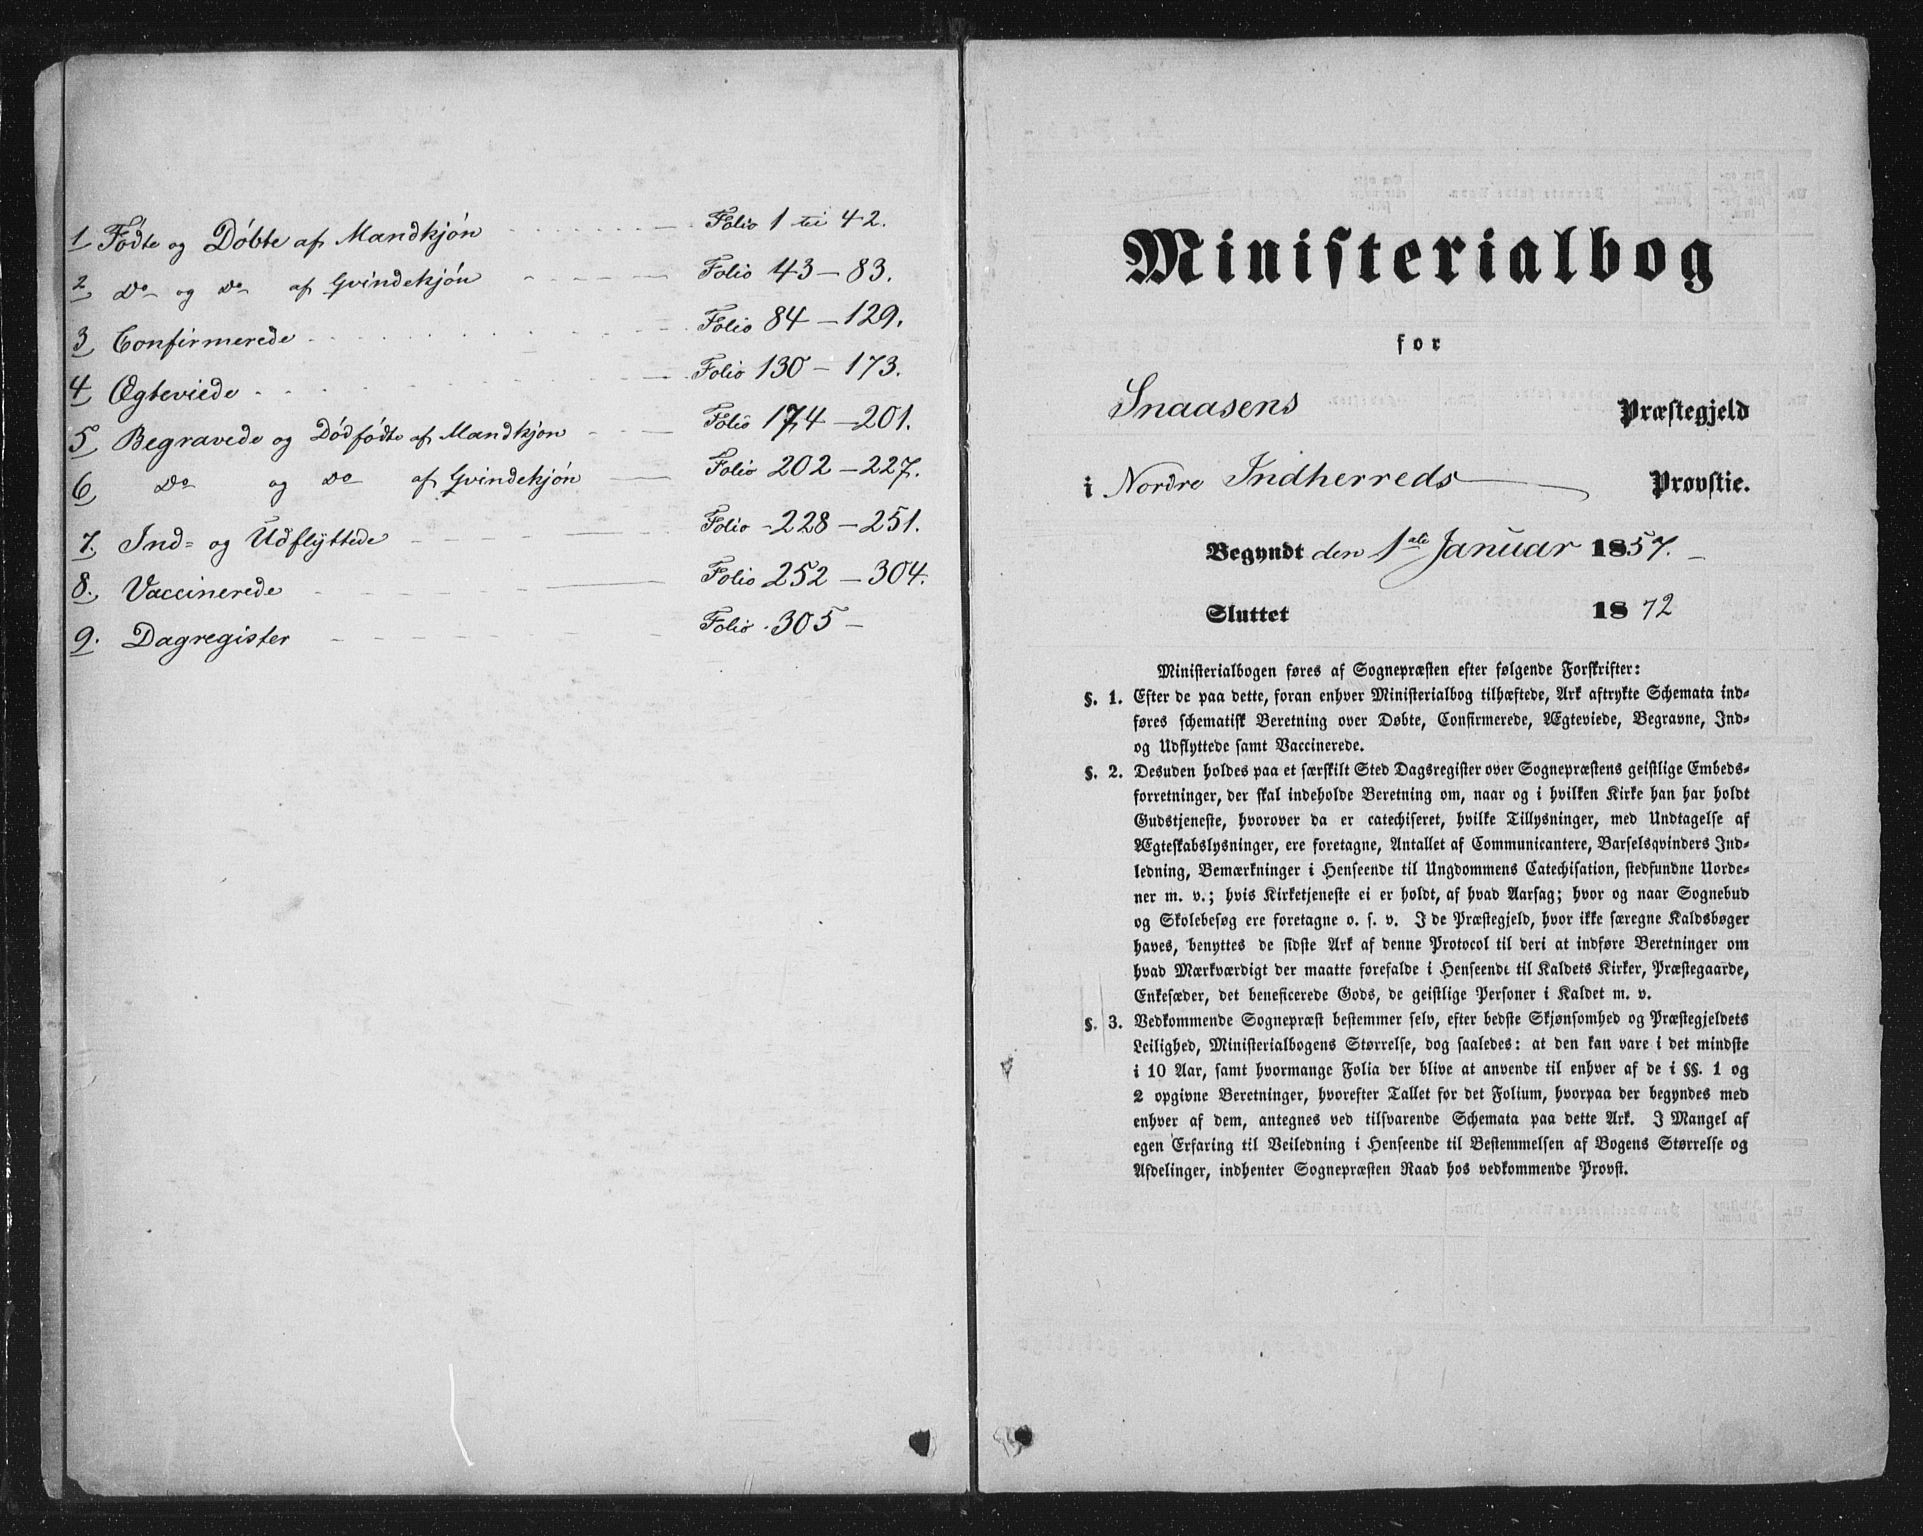 1 Fødte og Døbte af Mandkjøn Folio 1 til 42.
2, Do og Do af Qvindekjøn Folio 43-83.
3, Confirmerede Folio 84-129.
4, Ægteviede Folio 130-173.
5, Begravede og Dødfødte af Mandkjøn Folio 174-201.
6, Do og Do af Qvindekjøn Folio 202-227.
7. Ind= og Udflyttede Folio 228-251.
8. Vaccinerede Folio 252-304.
9. Dagregister Folio 305-
Ministerialbog
for
Snaasens Præstegjeld
i Nordre Indherreds Provstie.
Begyndt den 1ste Januar 1857.
Sluttet 1872
Ministerialbogen føres af Sognepræsten efter følgende Forskrifter:
§. 1. Efter de paa dette, foran enhver Ministerialbog tilhæftede, Ark aftrykte Schemata ind-
føres schematisk Beretning over Døbte, Confirmerede, Ægteviede, Begravne, Ind-
og Udflyttede samt Vaccinerede.
§. 2. Desuden holdes paa et særskilt Sted Dagsregister over Sognepræstens geistlige Embeds-
forretninger, der skal indeholde Beretning om, naar og i hvilken Kirke han har holdt
Gudstjeneste, hvorover da er catechiseret, hvilke Tillysninger, med Undtagelse af
Ægteskabslysninger, ere foretagne, Antallet af Communicantere, Barselsqvinders Ind-
ledning, Bemærkninger i Henseende til Ungdommens Catechisation, stedfundne Uorde-
ner m. v.; hvis Kirketjeneste ei er holdt, af hvad Aarsag; hvor og naar Sognebud
og Skolebesøg ere foretagne o. s. v. I de Præstegjeld, hvor ikke særegne Kaldsbøger
haves, benyttes de sidste Ark af denne Protocol til deri at indføre Beretninger om
hvad Mærkværdigt der maatte forefalde i Henseende til Kaldets Kirker, Præstegaarde,
Enkesæder, det beneficerede Gods, de geistlige Personer i Kaldet m. v.
§. 3. Vedkommende Sognepræst bestemmer selv, efter bedste Skjønsomhed og Præstegjeldets
Leilighed, Ministerialbogens Størrelse, dog saaledes: at den kan vare i det mindste
i 10 Aar, samt hvormange Folia der blive at anvende til enhver af de i §§. 1 og
2 opgivne Beretninger, hvorefter Tallet for det Folium, hvorpaa der begyndes med
enhver af dem, antegnes ved tilsvarende Schemata paa dette Ark. I Mangel af
egen Erfaring til Veiledning i Henseende til Bestemmelsen af Bogens Størrelse og
Afdelinger, indhenter Sognepræsten Raad hos vedkommende Provst.